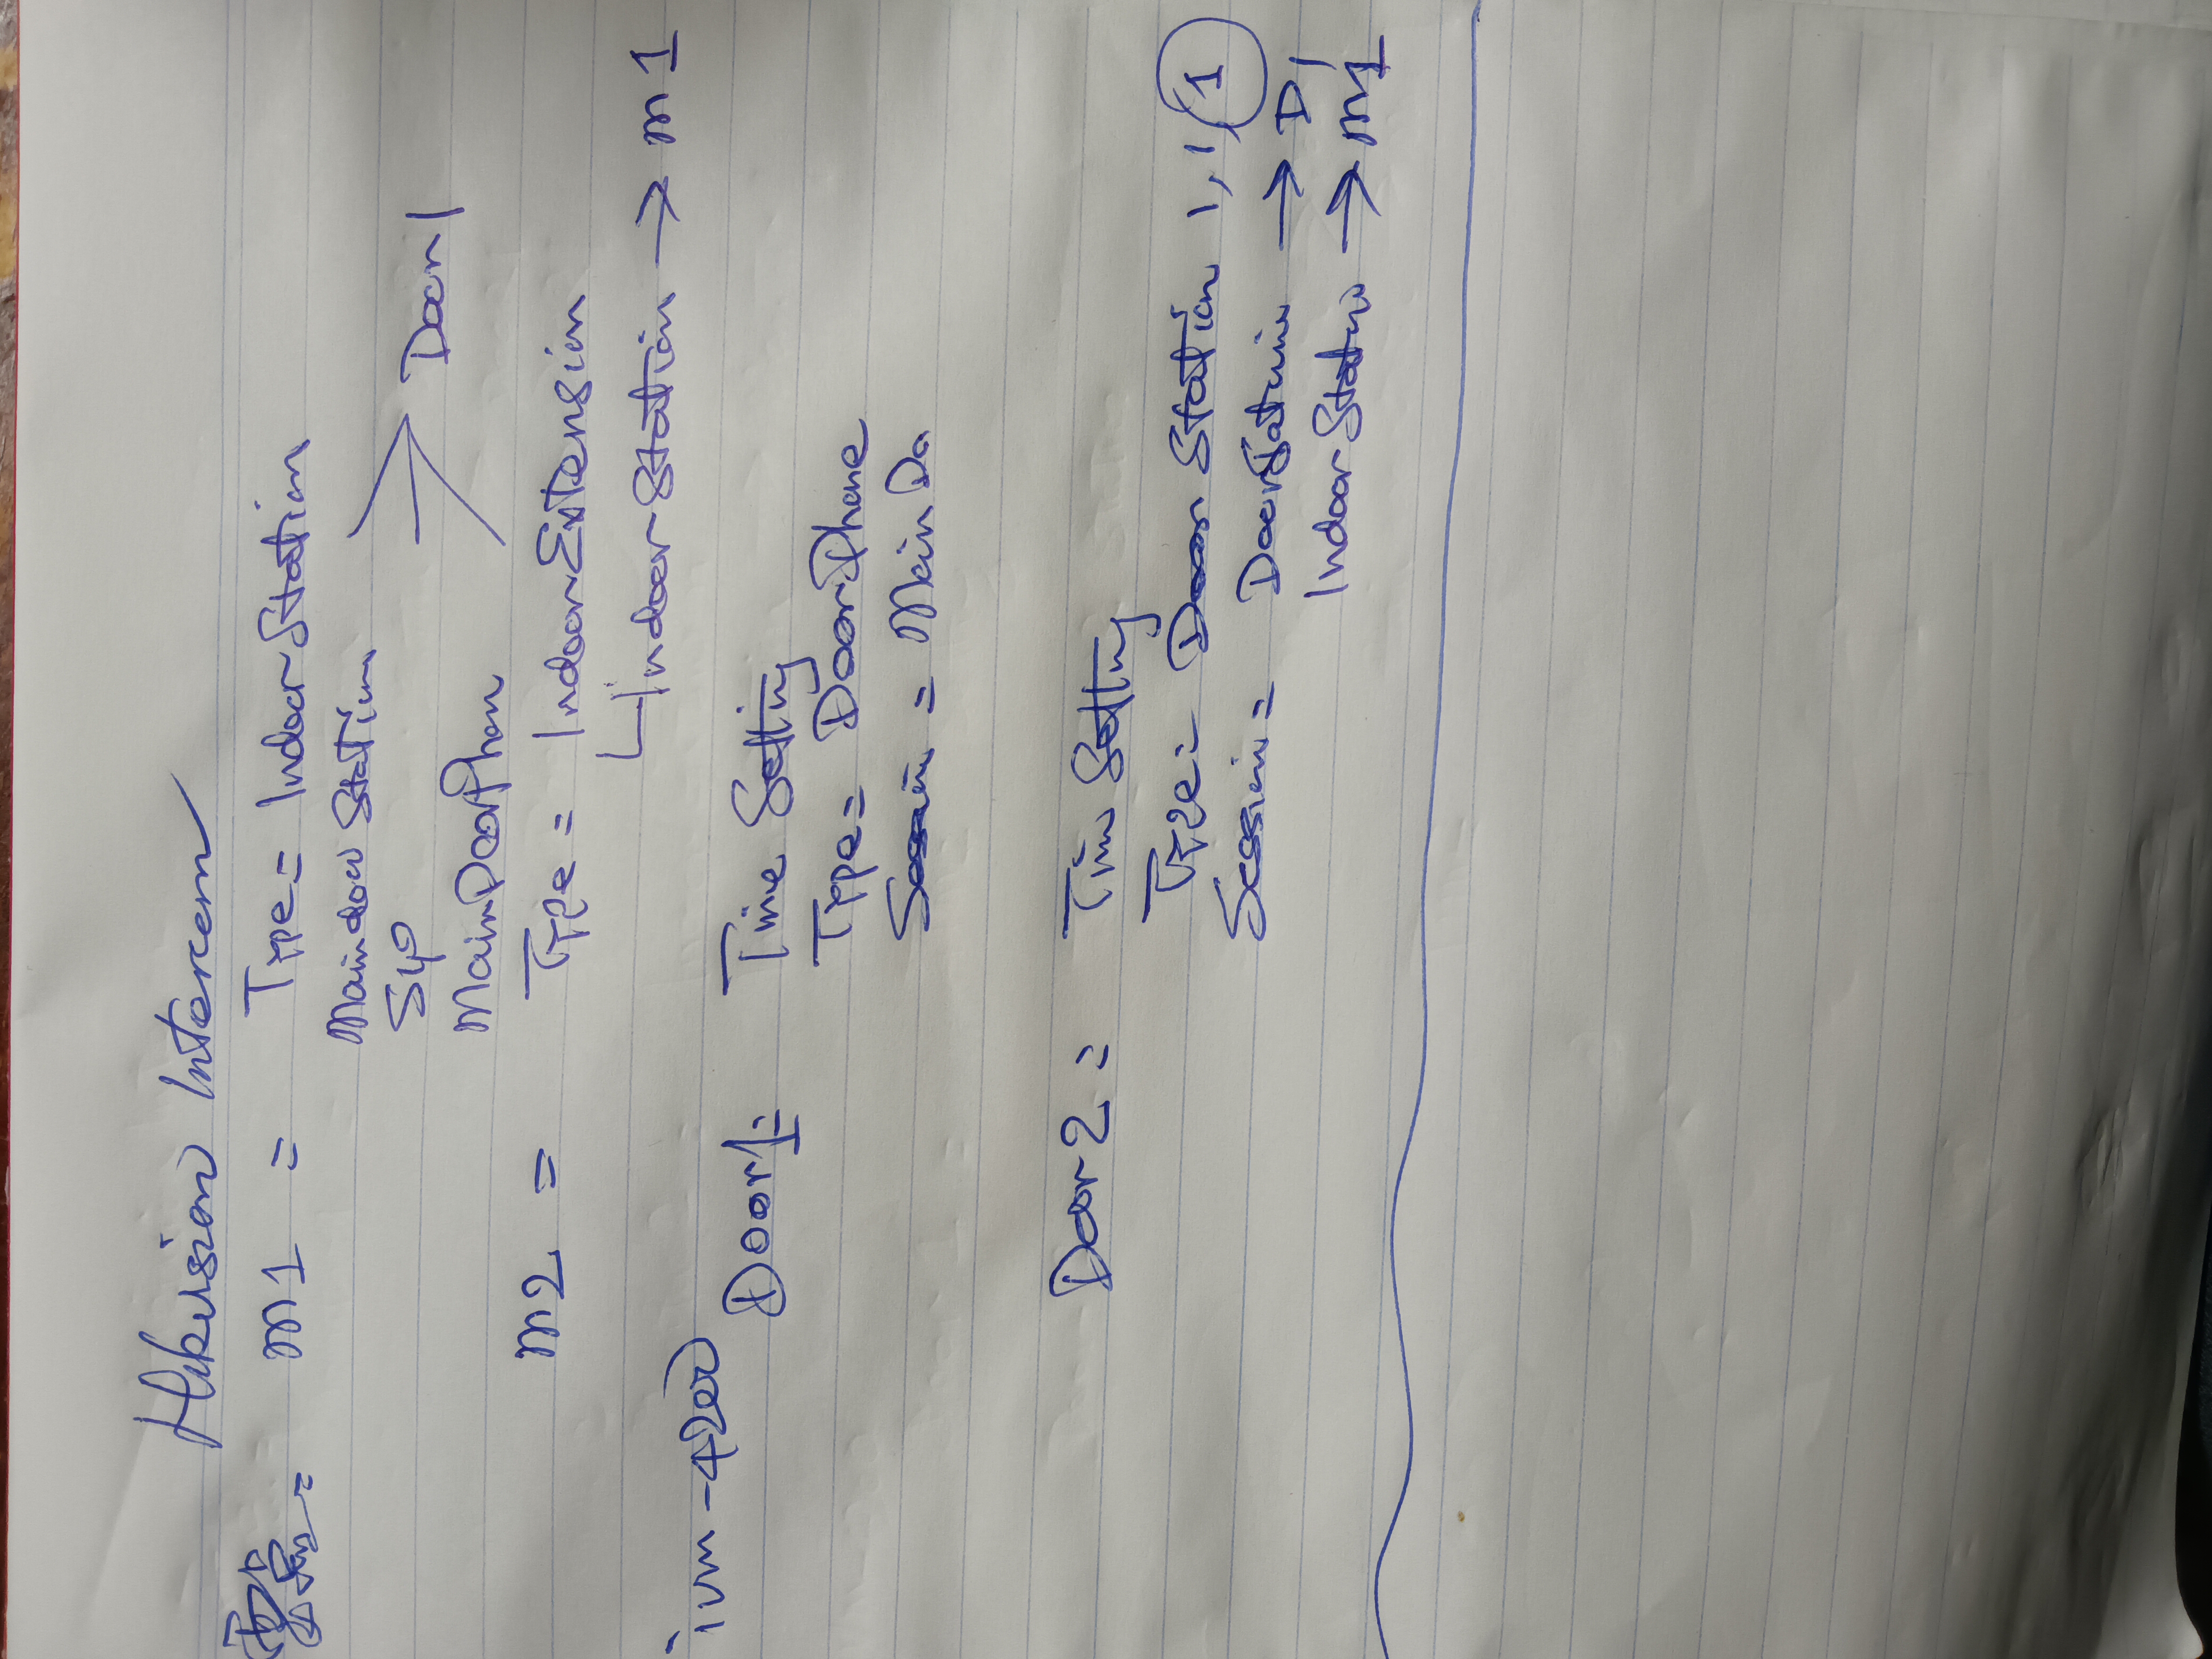 Hikvision Intercom
m1 = Type = Indoor Station
Maindoor Station
SIP → Door1
Main Door Phon
m2 = Type = Indoor Extension
Indoor Station → m1
ivm-4200
Door1 = Time Setting
Type = Door Phone
= Main Do
Door 2 = Tim Setting
Type = Door Station 1, 1, 1
Session = Door Station → D1
Indoor Station → m1